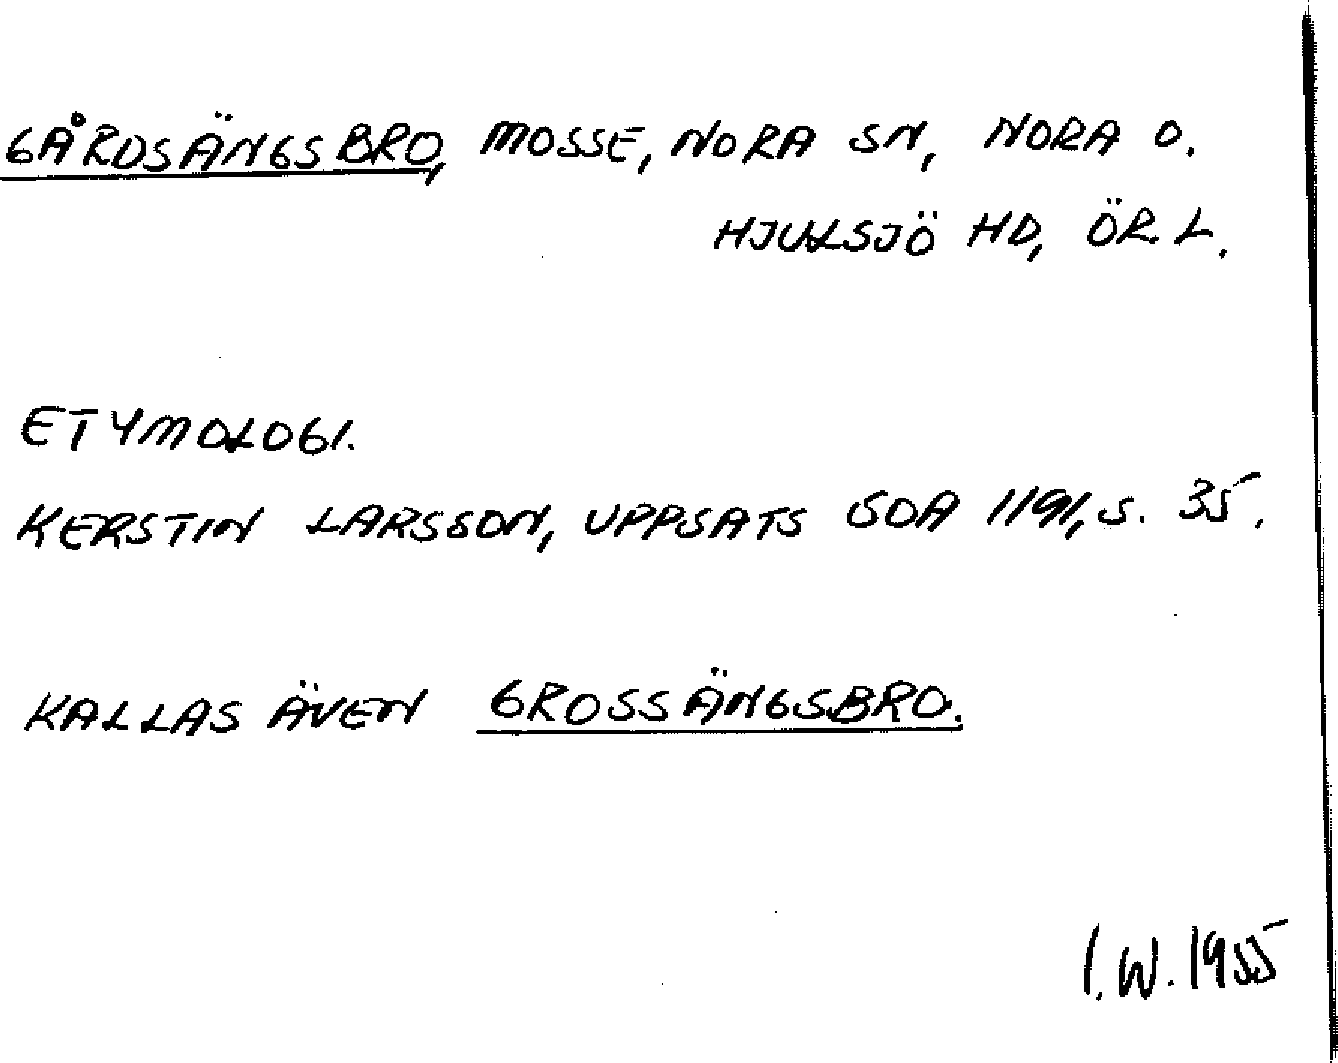 GÅRDSÄNGSBRO, MOSSE, NORA SN, NORA O.
HJULSJÖ HD, ÖR. L.
ETYMOLOGI.
KERSTIN LARSSON, UPPSATS GOA 1191, S. 35.
KALLAS ÄVEN GROSSÄNGSBRO.
I. W. 1955